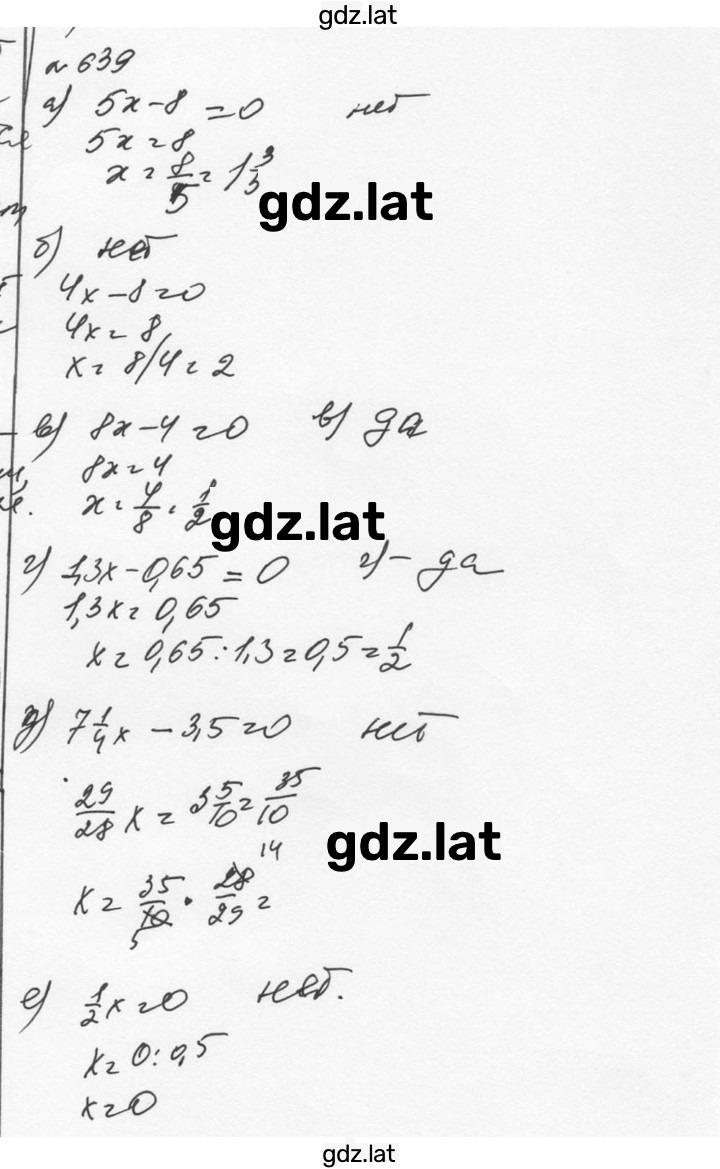 gdz.lat
№ 639
а) 5x-8 = 0 нет
5x = 8
x = 8/5 = 1 3/5
gdz.lat
б) нет
4x-8=0
4x= 8
x= 8/4= 2
в) 8x-4=0 в) да
8x=4
x= 4/8 = 1/2
gdz.lat
г) 1,3x-0,65 = 0 г)- да
1,3x= 0,65
x= 0,65:1,3=0,5=1/2
д) 7 1/4 x - 3,5=0 нет
29/28 x = 3 5/10 = 35/10
gdz.lat
14
x= 35/10 · 28/29 =
5
е) 1/2 x=0 нет.
x= 0:0,5
x=0
gdz.lat